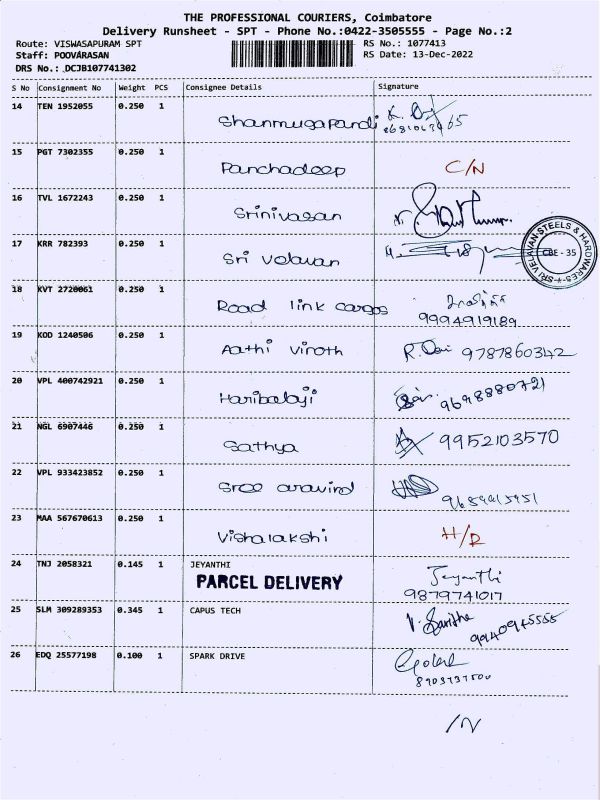 THE PROFESSIONAL COURIERS, Coimbatore
Delivery Runsheet - SPT - Phone No.:0422-3505555 - Page No.:2
Route: VISWASAPURAM SPT RS No.: 1077413
Staff: POOVARASAN RS Date: 13-Dec-2022
DRS No.: DCJB107741302
S No Consignment No Weight PCS Consignee Details Signature
14 TEN 1952055 0.250 1 Shanmugapandi
15 PGT 7302355 0.250 1 Panchadeep C/N
16 TVL 1672243 0.250 1 Srinivasan
17 KRR 782393 0.250 1 Sri velavan
SRI VELAVAN STEELS & HARDWARES CBE - 35
18 KVT 2720061 0.250 1 Road link cargos
9994919189
19 KOD 1240506 0.250 1 Aathi viroth 9787860342
20 VPL 400742921 0.250 1 Haribalaji 9698880721
21 NGL 6907446 0.250 1 Sathya 9952103570
22 VPL 933423852 0.250 1 Sree aravind
23 MAA 567670613 0.250 1 Vishalakshi
24 TNJ 2058321 0.145 1 JEYANTHI Jeyanthi
PARCEL DELIVERY 9879741017
25 SLM 309289353 0.345 1 CAPUS TECH 9940945555
26 EDQ 25577198 0.100 1 SPARK DRIVE
/N